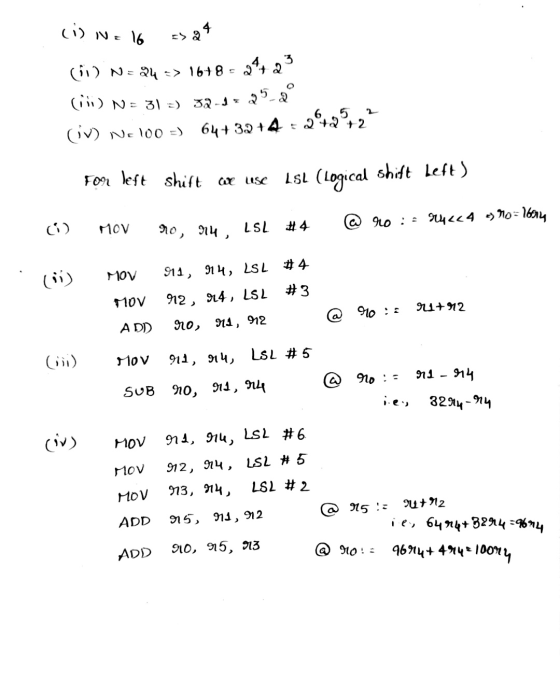 (i) N = 16 => 2^4
(ii) N = 24 => 16+8 = 2^4 + 2^3
(iii) N = 31 => 32-1 = 2^5 - 2^0
(iv) N = 100 => 64+32+4 = 2^6+2^5+2^2
For left shift we use LSL (Logical shift Left)
(i) MOV r0, r4, LSL #4 @ r0 := r4<<4 => r0=16r4
(ii) MOV r1, r4, LSL #4
MOV r2, r4, LSL #3
ADD r0, r1, r2 @ r0 := r1+r2
(iii) MOV r1, r4, LSL #5
SUB r0, r1, r4 @ r0 := r1 - r4
i.e., 32r4-r4
(iv) MOV r1, r4, LSL #6
MOV r2, r4, LSL #5
MOV r3, r4, LSL #2
ADD r5, r1, r2 @ r5 := r1+r2
i e, 64r4+32r4=96r4
ADD r0, r5, r3 @ r0 := 96r4+4r4=100r4